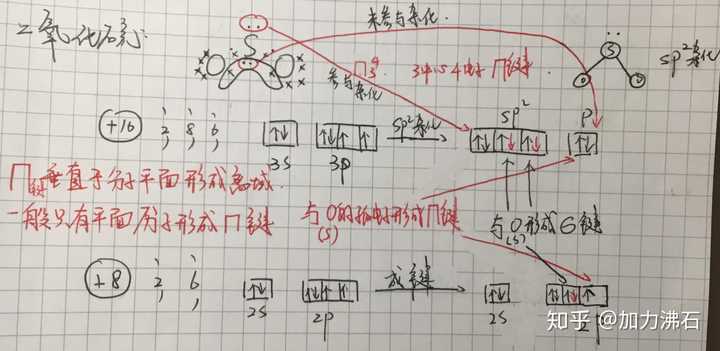 二氧化硫:
未参与杂化.
S
参与杂化
Π₃⁴ 3中心4电子Π键.
S
sp²杂化
+16 2, 8, 6,
3s 3p
sp²杂化
sp² p
Π键垂直于分子平面形成离域.
一般只有平面分子形成Π键
与O的孤电子形成Π键
(S)
与O形成σ键
(S)
+8 2, 6,
2s 2p
成键
2s 2p
知乎 @加力沸石